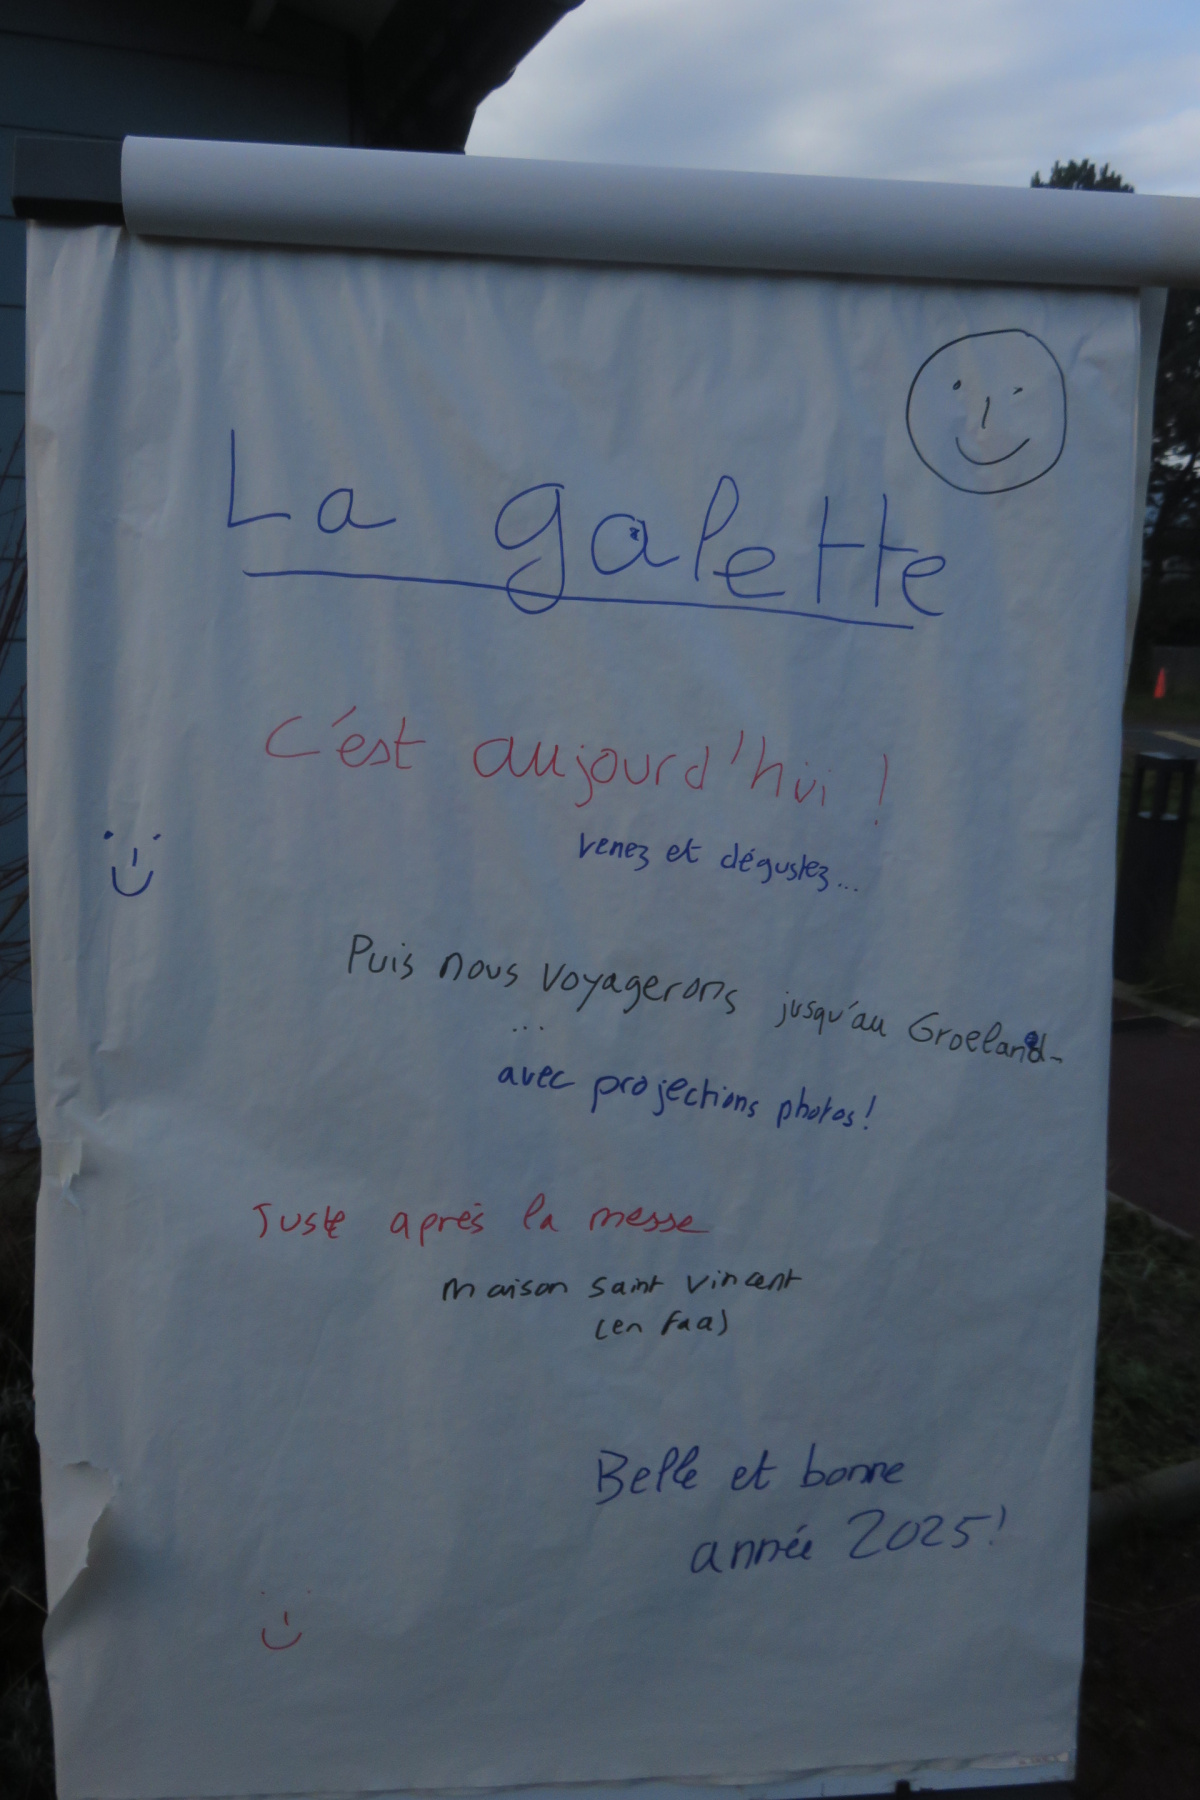 La galette
C'est aujourd'hui !
venez et dégustez...
Puis nous voyagerons jusqu'au Groeland
...
avec projections photos !
Juste après la messe
maison saint vincent
(en faa)
Belle et bonne
année 2025 !